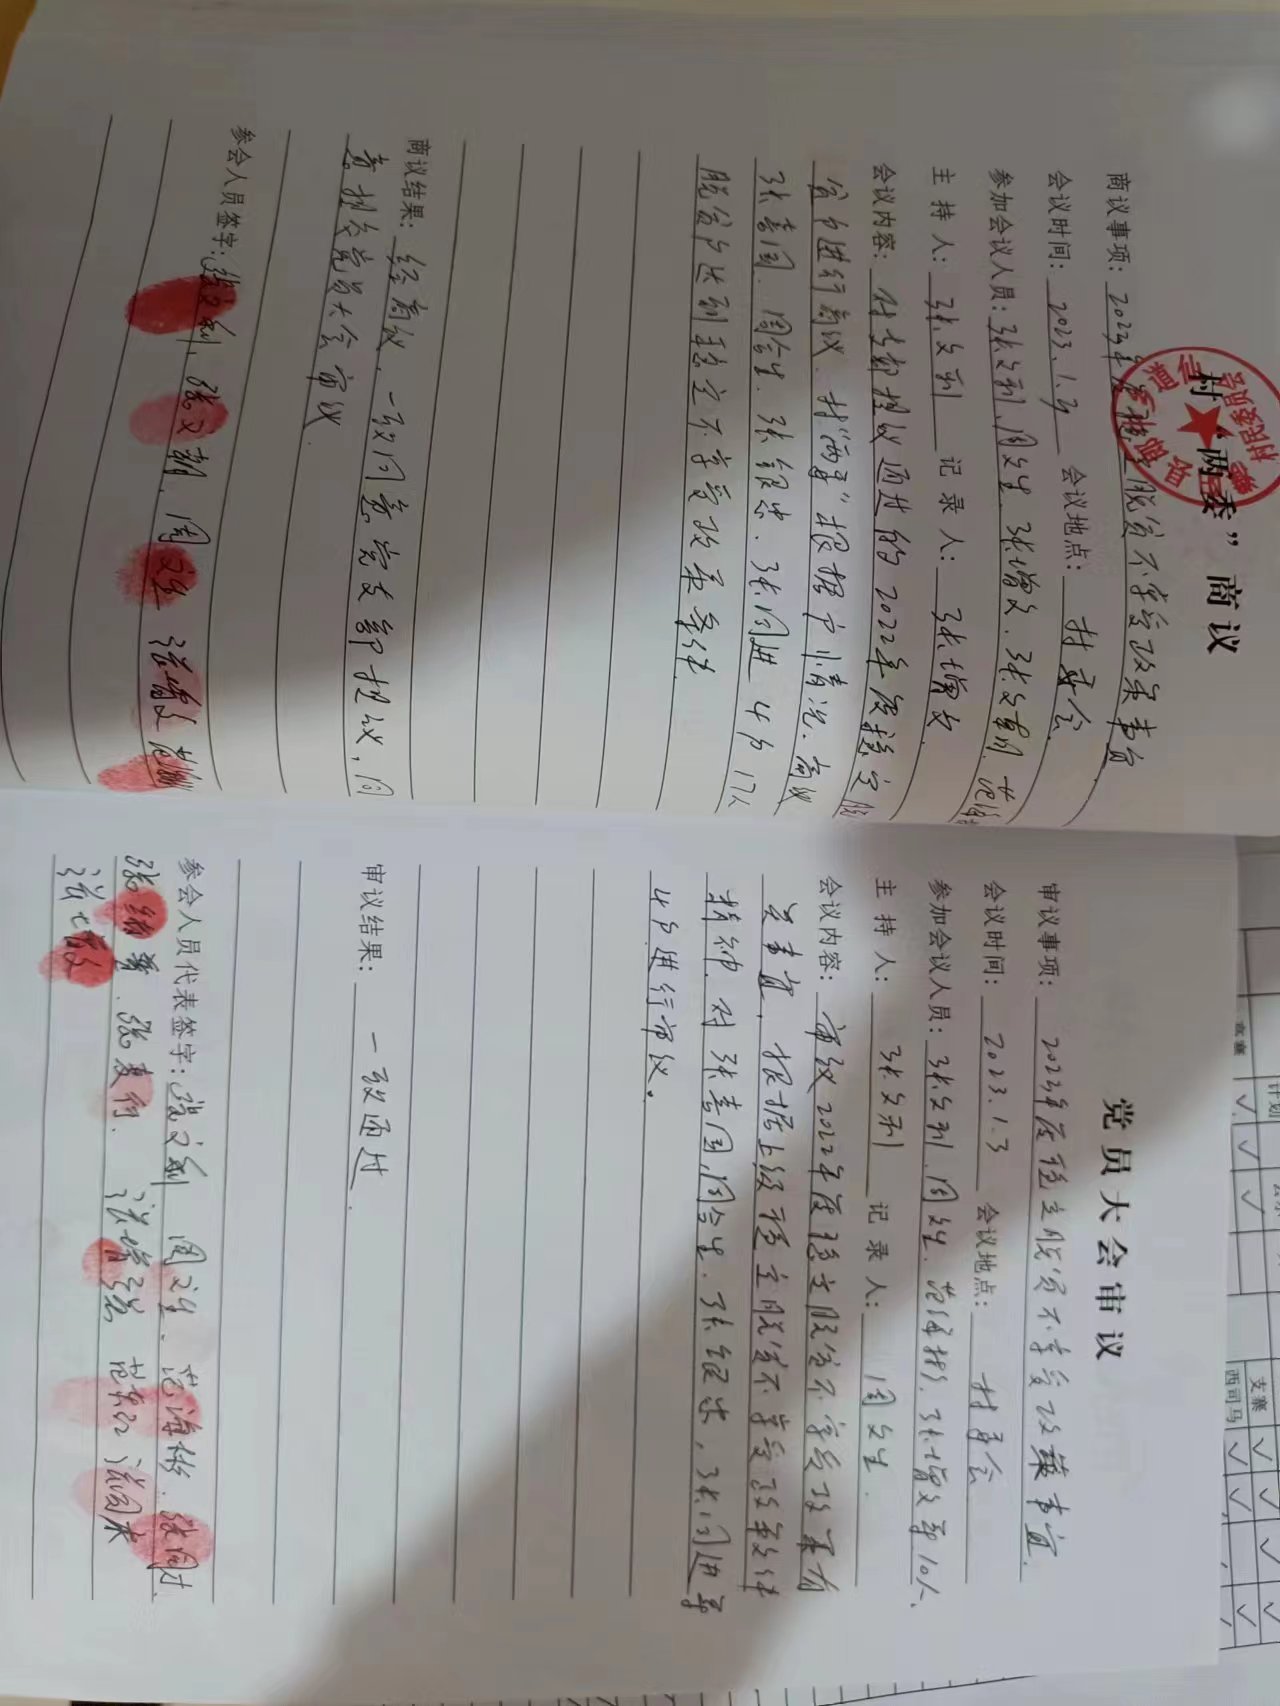 村“两委”商议
商议事项：2022年度稳定脱贫不享受政策事宜
会议时间：2023.1.3 会议地点：村委会
参加会议人员：张文利、周文生、张增文、张文朝、范海
主持人：张文利 记录人：张增文
会议内容：对支部提议通过的2022年度稳定脱
贫户进行商议，村“两委”根据户情况，商议
张喜周、周合生、张银忠、张同进4户17人
脱贫户达到稳定不享受政策条件
商议结果：经商议，一致同意党支部提议，同
意提交党员大会审议
参会人员签字：张文利、张文朝、周文生 张增文 范海
党员大会审议
审议事项：2022年度稳定脱贫不享受政策事宜
会议时间：2023.1.3 会议地点：村委会
参加会议人员：张文利、周文生、范海彬、张增文等10人
主持人：张文利 记录人：周文生
会议内容：审议2022年度稳定脱贫不享受政策有
关事宜，根据上级稳定脱贫不享受政策文件
精神，对张喜周、周合生、张银忠，张同进等
4户进行审议。
审议结果：一致通过
参会人员代表签字：张文利 周文生、范海彬、张同
张 张 行、张增 范 张同
张
支寨
西司马
计划